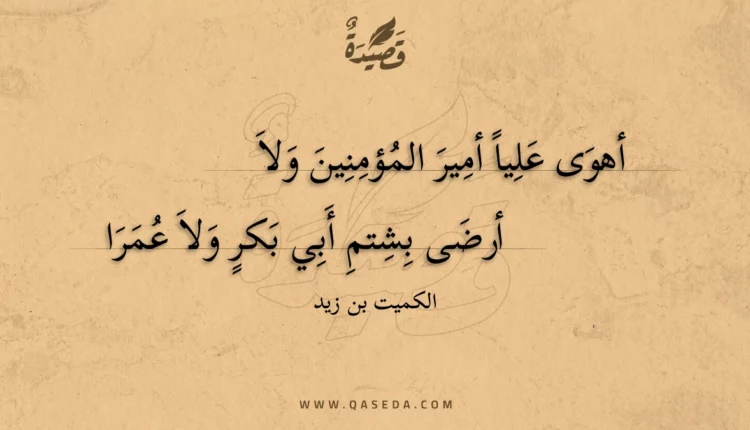 قَصِيدَةٌ
أهوَى عَلِياً أمِيرَ المُؤمِنِينَ وَلاَ
أرضَى بِشِتمِ أَبِي بَكرٍ وَلاَ عُمَرَا
الكميت بن زيد
WWW.QASEDA.COM